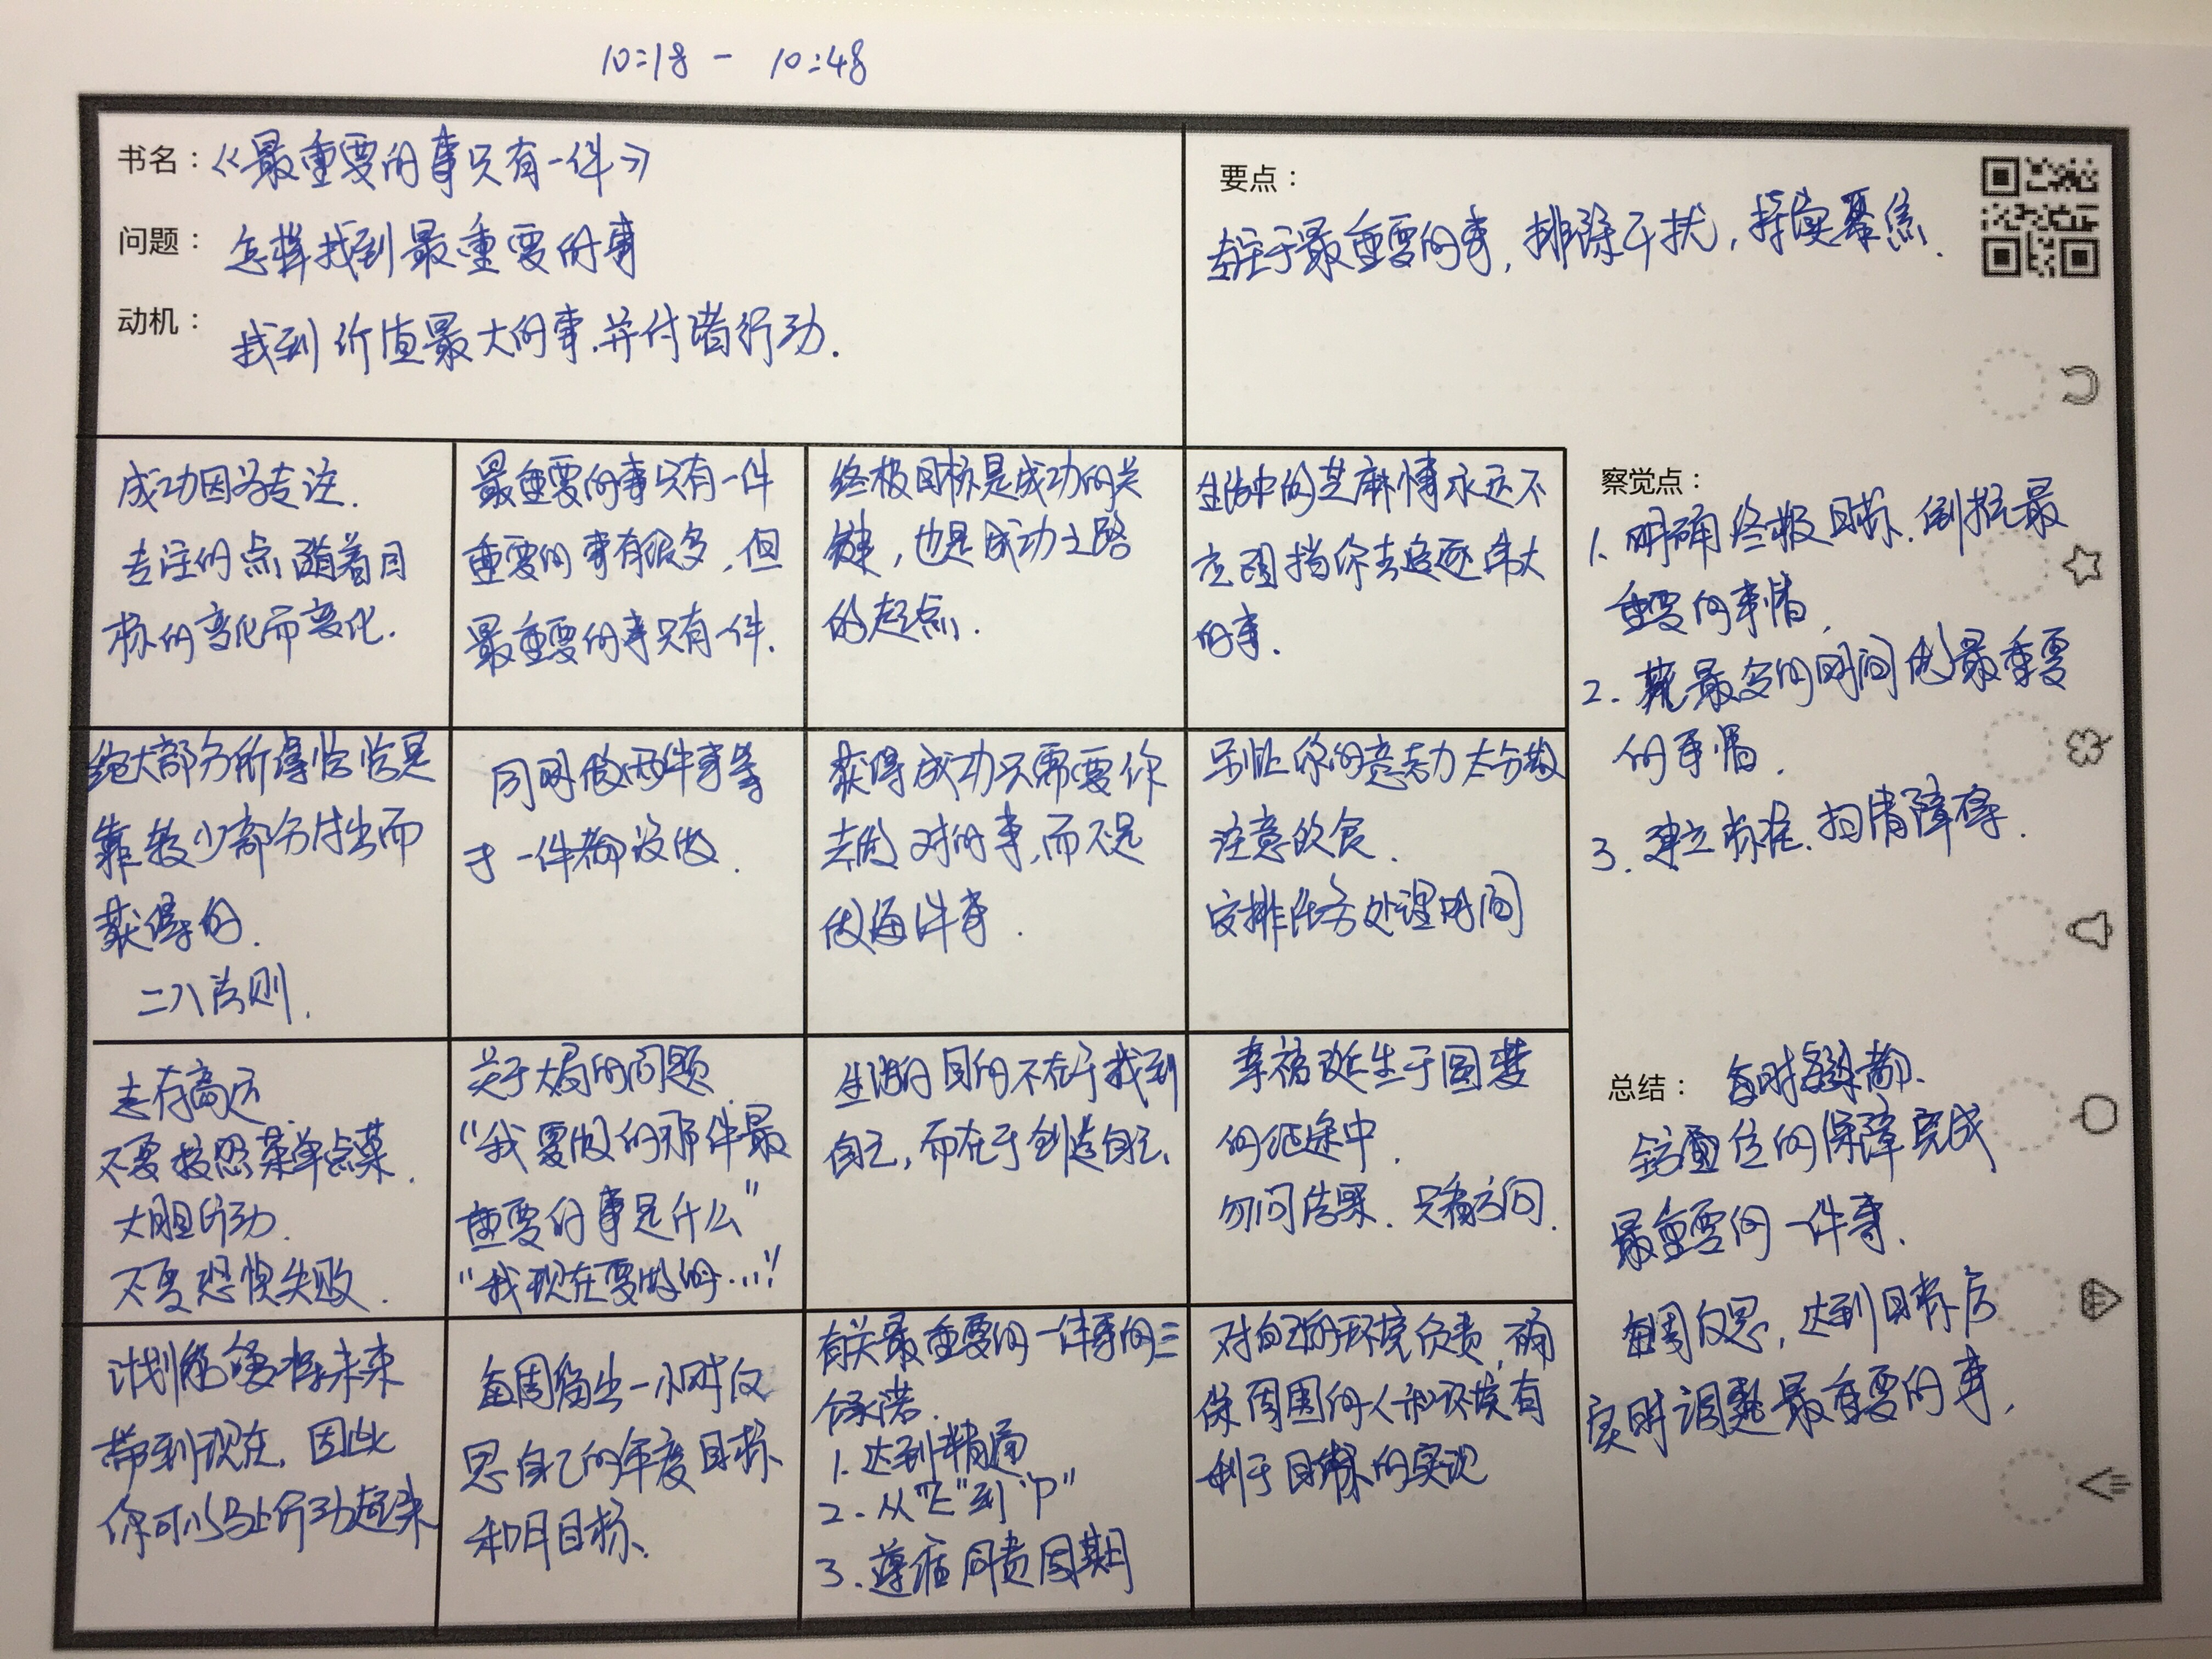 10:18 - 10:48
书名：《最重要的事只有一件》
问题：怎样找到最重要的事
动机：找到价值最大的事.并付诸行动.
要点：
专注于最重要的事, 排除干扰, 持续聚焦.
成功因为专注.
专注的点随着目
标的变化而变化.
最重要的事只有一件
重要的事有很多, 但
最重要的事只有一件.
终极目标是成功的关
键, 也是成功之路
的起点.
生活中的芝麻事永远不
应阻挡你去追逐伟大
的事.
绝大部分所得恰恰是
靠较少部分付出而
获得的.
二八法则.
同时做两件事等
于一件都没做.
获得成功只需要你
去做对的事,而不是
做每件事.
别让你的意志力太分散
注意饮食.
安排任务处理时间
志存高远.
不要按照菜单点菜.
大胆行动.
不要恐惧失败.
关于大局的问题.
“我要做的那件最
重要的事是什么”
“我现在要做的…”
生活的目的不在于找到
自己, 而在于创造自己.
幸福诞生于圆梦
的征途中.
勿问结果. 只看方向.
计划能够将未来
带到现在, 因此
你可以马上行动起来
每周留出一小时反
思自己的年度目标
和月目标.
有关最重要的一件事的三
个承诺.
1. 达到精通
2. 从“E”到“P”
3. 遵循问责周期
对自己的环境负责, 确
保周围的人和环境有
利于目标的实现
察觉点：
1. 明确终极目标. 倒推最
重要的事情.
2. 花最多的时间做最重要
的事情.
3. 建立标准. 扫清障碍.
总结：每时每刻都.
全方位的保障完成
最重要的一件事.
每周反思, 达到目标后
实时调整最重要的事.